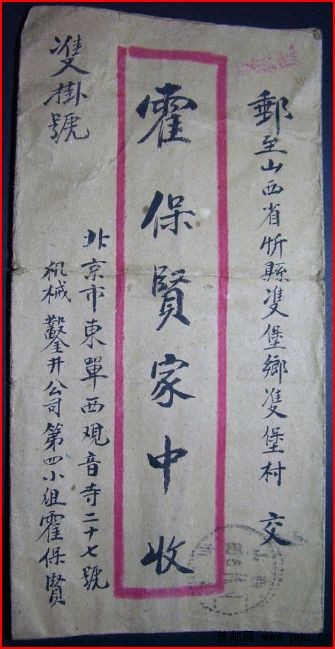 郵至山西省忻縣雙堡鄉雙堡村 交
霍保賢家中收
雙掛號
北京市東單西观音寺二十七號
机械鑿井公司第四小组霍保賢